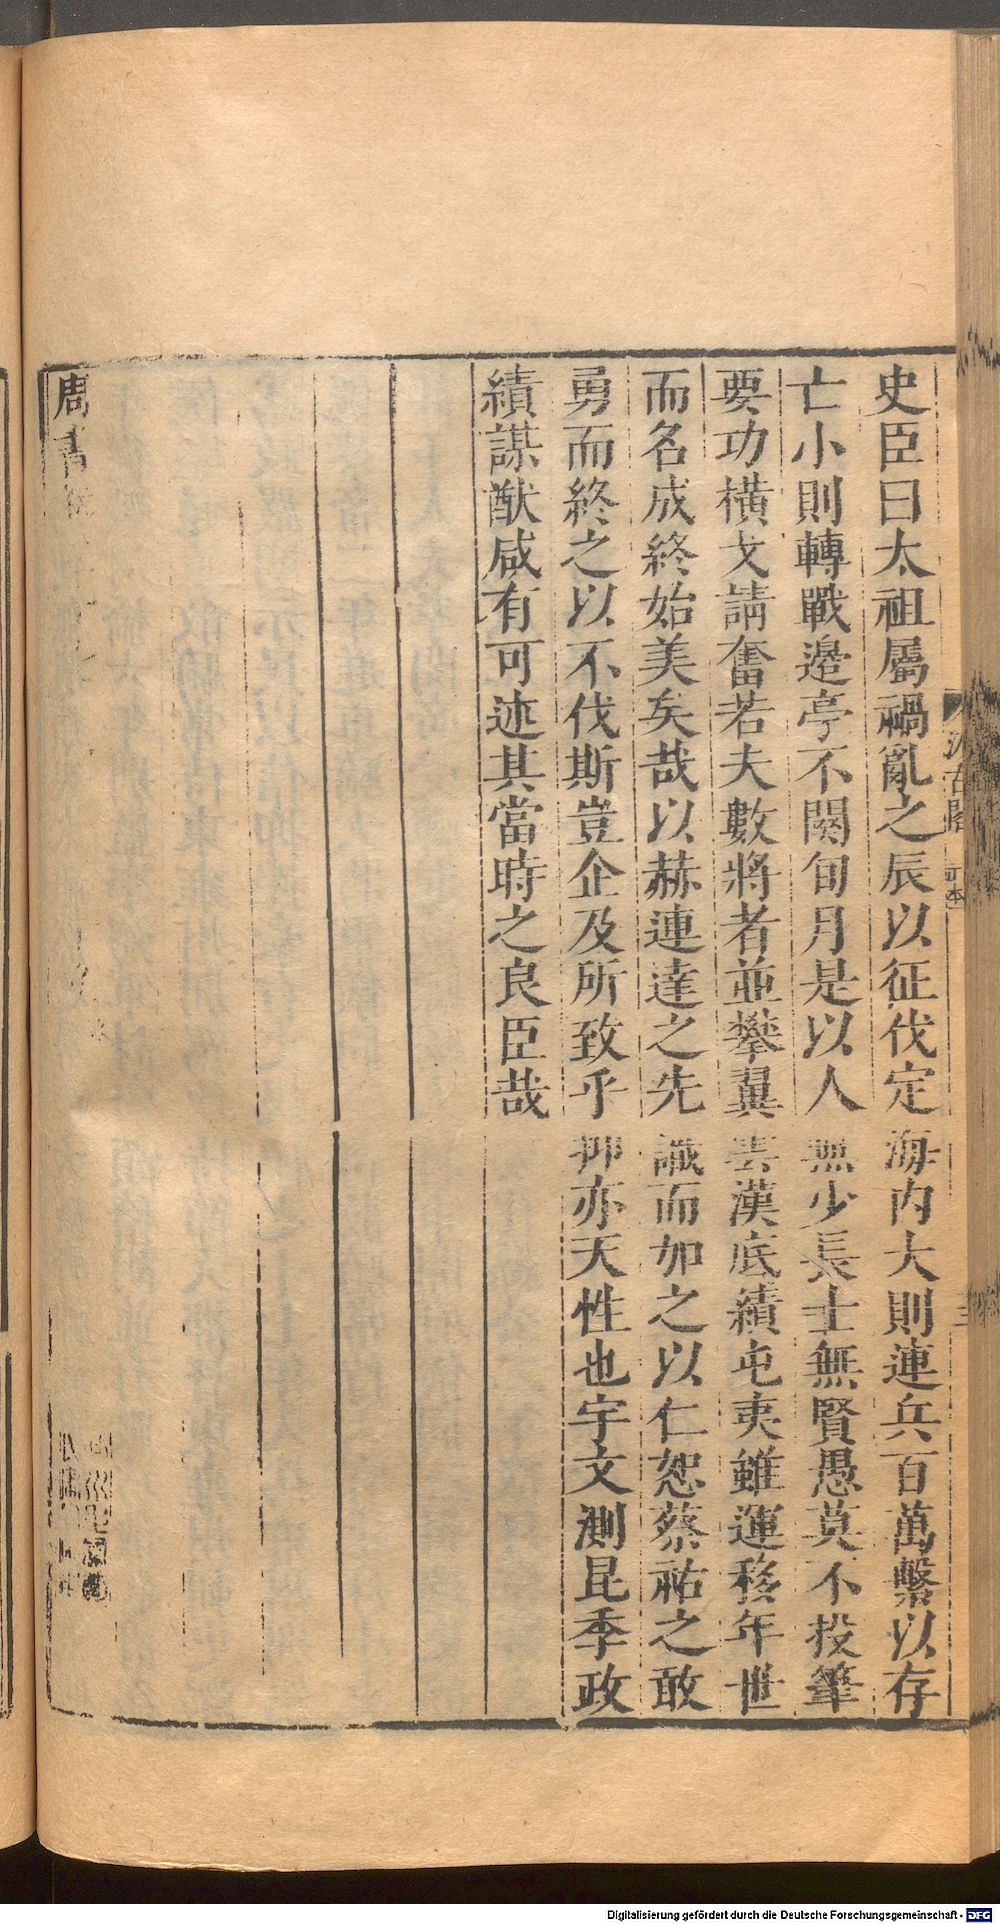 史臣曰太祖屬禍亂之辰以征伐定海內大則連兵百萬繫以存
亡小則轉戰邊亭不闕旬月是以人無少長士無賢愚莫不投筆
要功橫戈請奮若夫數將者並攀翼雲漢底績屯夷雖運移年世
而名成終始美矣哉以赫連達之先識而加之以仁恕蔡祐之敢
勇而終之以不伐斯豈企及所致乎抑亦天性也宇文測昆季政
績謀猷咸有可述其當時之良臣哉
周書
汲古閣
Digitalisierung gefördert durch die Deutsche Forschungsgemeinschaft - DFG